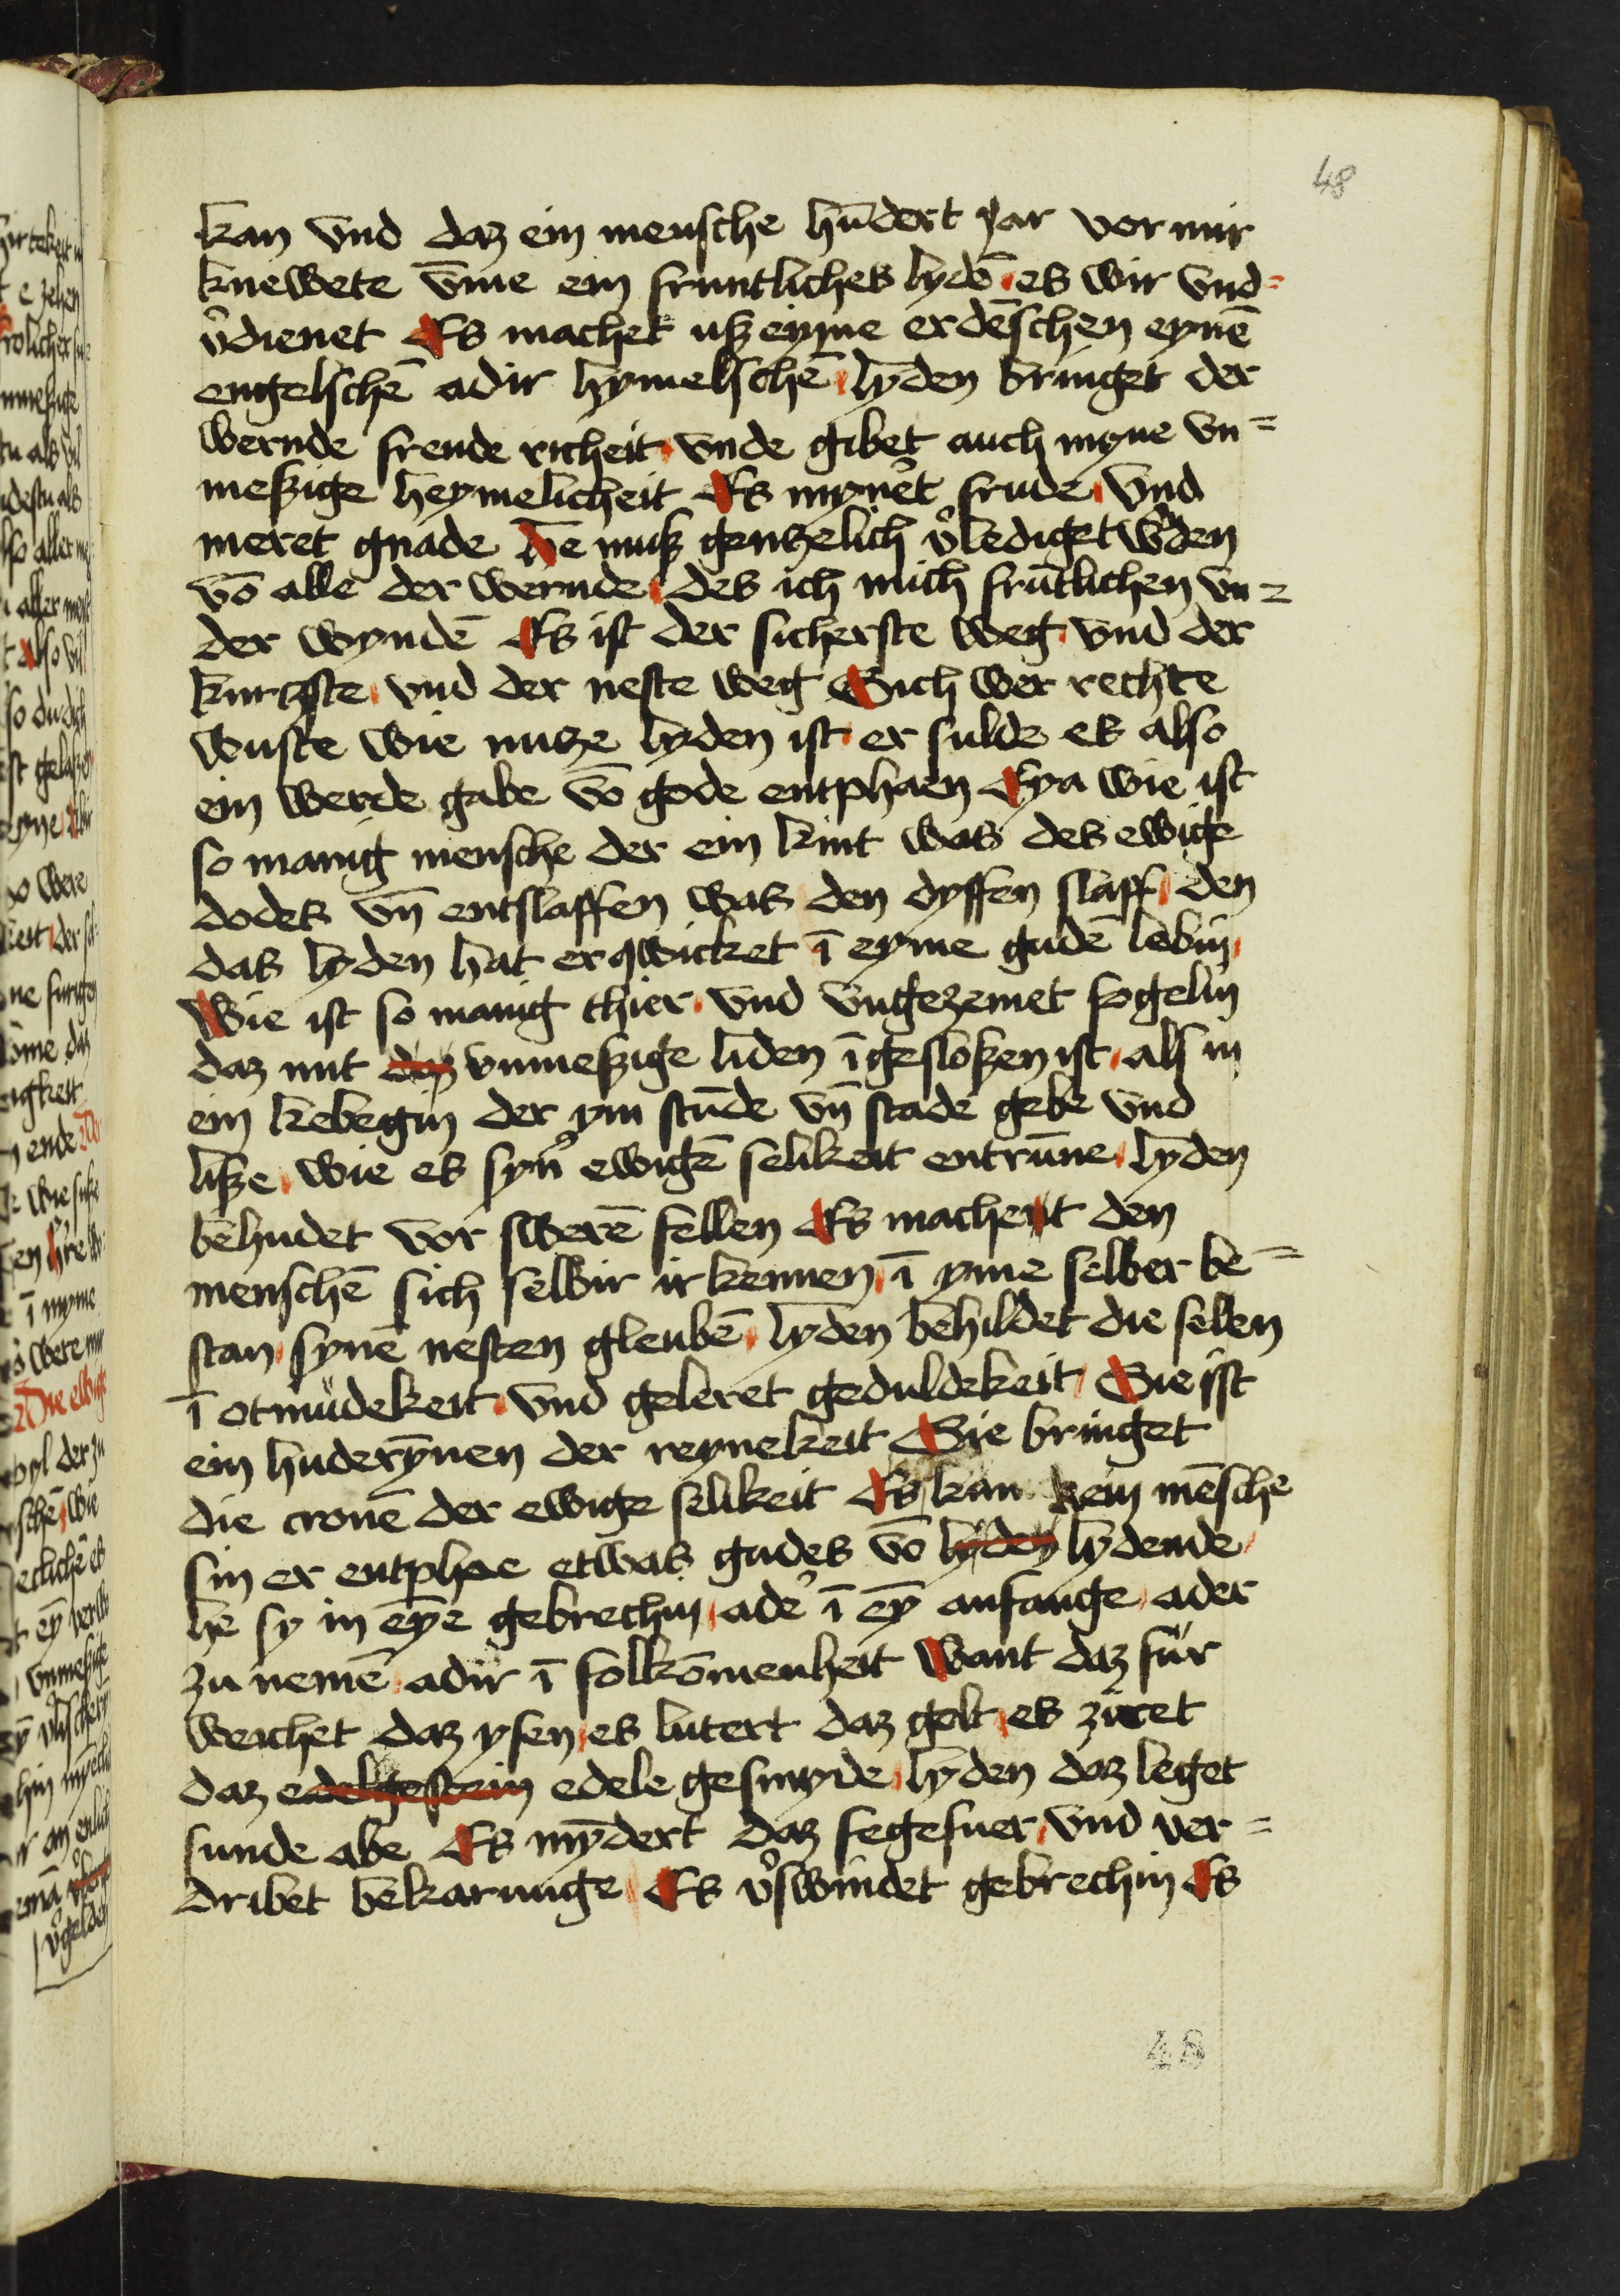 48
kan vnd daz ein mensche hūdert jar vor mir
knewete v̄me ein fruntliches lydē es wir vnd=
v̾dienet Es machet uß eyme erdēschen eynē
engelschē adir hymelschē lyden bringet der
wernde frende richeit vnde gibet auch myne vn=
meßige heymelicheit Es myn̾et frude vnd
meret gnade He muß gentzelich v̾lediget w̾den
vō alle der wernde des ich mich frūtlichen vn=
der wyndē Es ist der sicherste weg vnd der
kurtzste vnd der neste weg Sich wer rechte
wuste wie nutze lyden ist er sulde es also
ein werde gabe vō gode entphaen Eya wie ist
so manig mensche der ein kint was des ewige
dodes vn̄ entslaffen was den dyffen slapf den
das lyden hat erqwicket ī eyme gudē lebin
Wie ist so manig thier vnd vngezemet fogelin
daz mit daz vnmeßige liden īgesloßen ist als in
ein kebegin der ym stūde vn̄ stade gebe vnd
liße wie es syn̾ ewigē selikeit entrūne lyden
behudet vor swerē fellen Es machent den
menschē sich selbir irkennen ī yme selber be=
stan synē nesten gleubē lyden behildet die selen
ī otmüdekeit vnd geleret geduldekeit Sie ist
ein huderȳnen der reynekeit Sie bringet
die cronē der ewige selikeit Es kan kein mēsche
sin er entphae etwas gudes vō lyden lydende
he sy in eȳe gebrechin ade̾ ī eȳ anfange ader
zu nemē adir ī folkōmenheit want daz für
weichet daz ysen es lutert daz golt es ziret
daz edelgestein edele gesmyde lyden daz leget
sunde abe Es mȳdert daz fegefuer vnd ver=
dribet bekarunge Es v̾swindet gebrechin Es
48